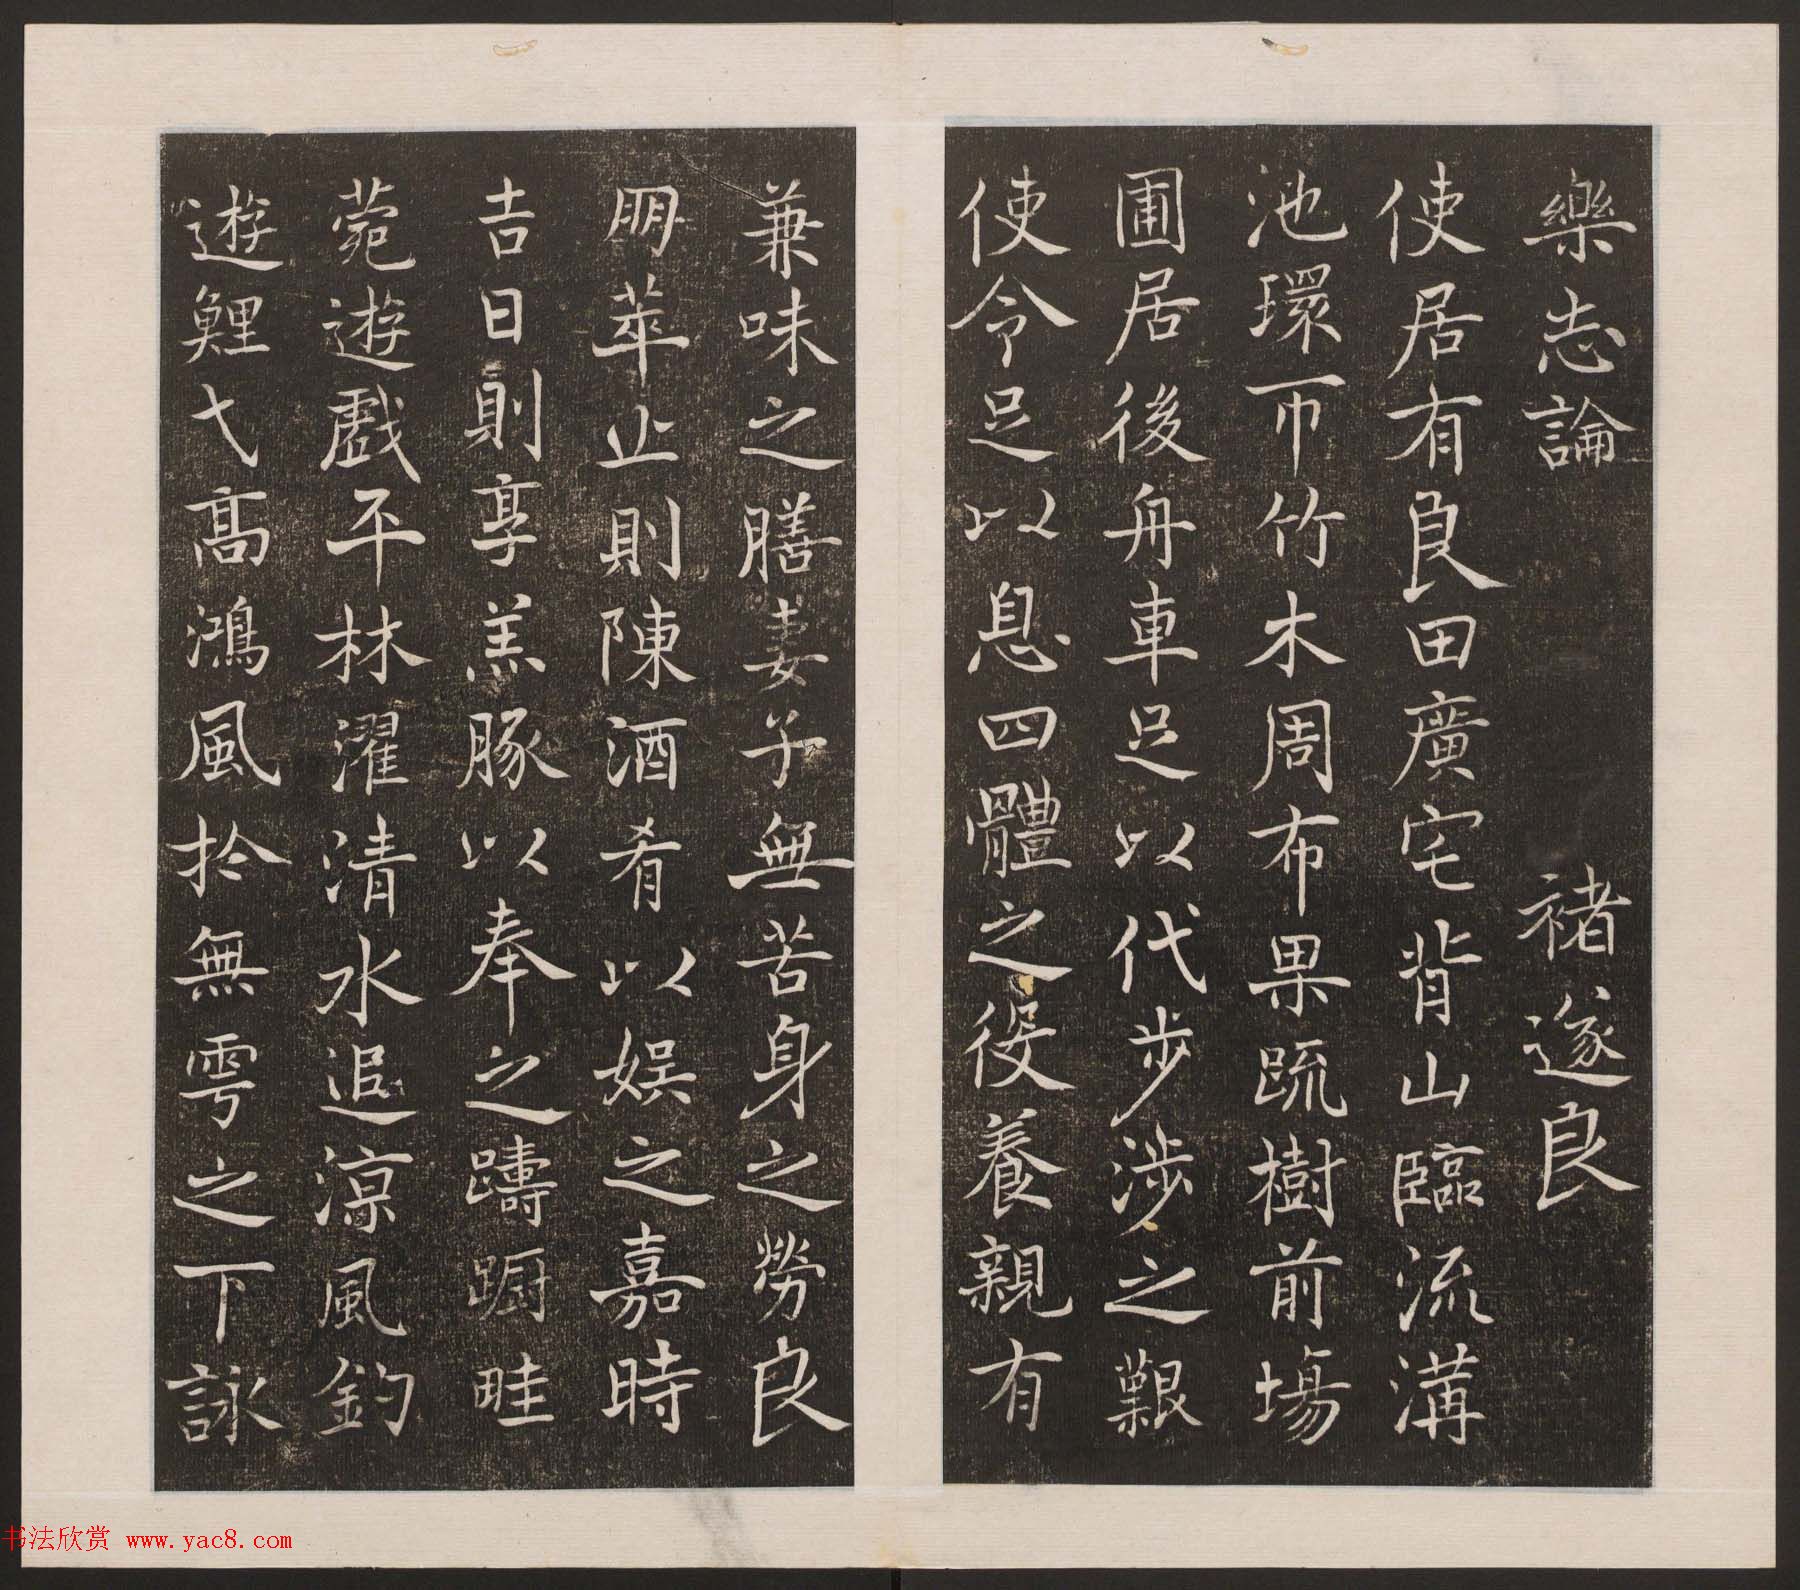 樂志論 褚遂良
使居有良田廣宅背山臨流溝
池環帀竹木周布果蔬樹前場
圃居後舟車足以代步涉之艱
使令足以息四體之役養親有
兼味之膳妻子無苦身之勞良
朋萃止則陳酒肴以娛之嘉時
吉日則享羔豚以奉之躊躕畦
菀遊戲平林濯清水追涼風釣
遊鯉弋高鴻風於無雩之下詠
书法欣赏 www.yac8.com